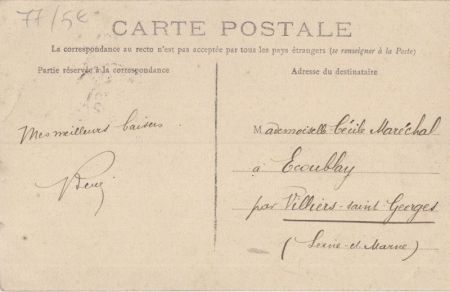 77/5€
CARTE POSTALE
La correspondance au recto n'est pas acceptée par tous les pays étrangers (se renseigner à la Poste)
Partie réservée à la correspondance
Adresse du destinataire
Mes meilleurs baisers.
Mademoiselle Cécile Maréchal
à Ecoublay
par Villiers-saint Georges
(Seine-et-Marne)